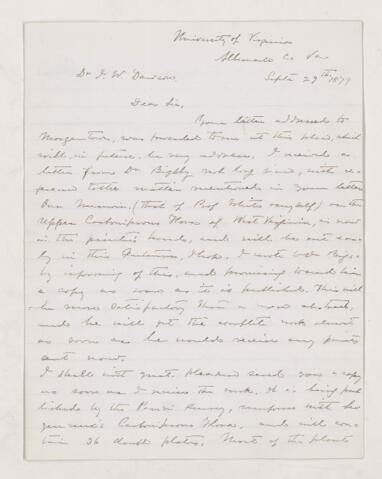 University of Virginia
Albemarle Co. Va
Septr 29th 1879
Dr J. W. Dawson
Dear Sir,
Your letter addressed to
Morgantown, was forwarded to me at this place, which
will, in future, be my address. I received a
letter from Dr Bigsby not long since, with re-
gard to the matter mentioned in your letter
Our Memoir, (that of Prof White & myself) on the
Upper Carboniferous Flora of West Virginia, is now
in the printer's hands, and will be out ear-
ly in this Autumn, I hope. I wrote to Dr Bigs-
by informing of this, and promising to send him
a copy as soon as it is published. This will
be more satisfactory than a mere abstract,
and he will get the complete work almost
as soon as he would receive any
sent now.
I shall with great pleasure send you a copy
as soon as I receive the work. It is being pub
lished by the Penn Survey, uniform with Les
quereux's Carboniferous Flora, and will con-
tain 36 double plates. Most of the plants